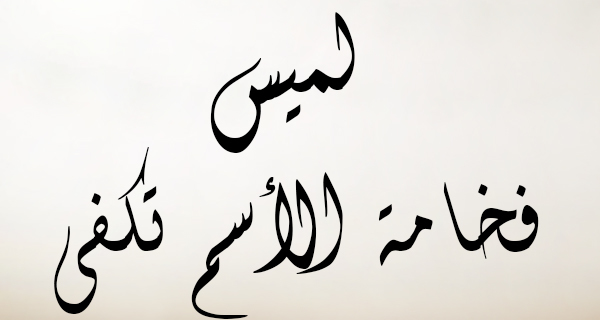 لميس
فخامة الأسم تكفى